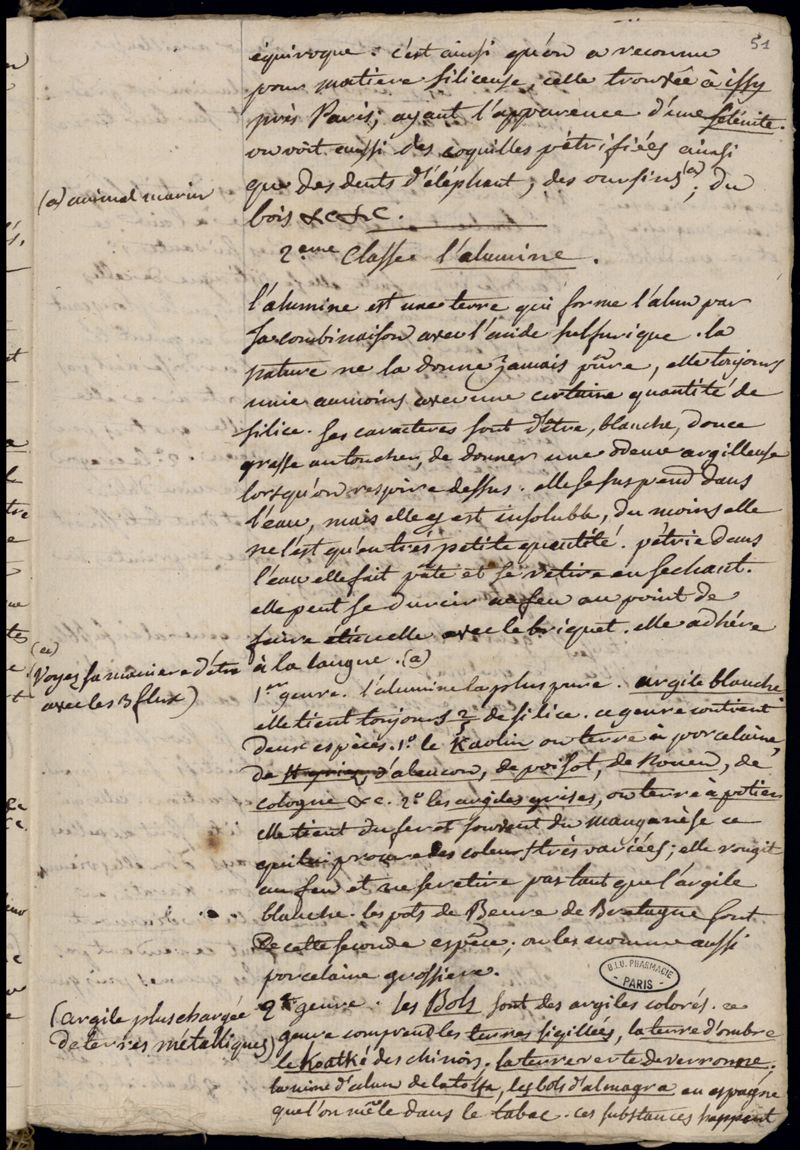 51
équivoque. c'est ainsi qu'on a reconnu
pour matiere siliceuse, celle trouvée à issy
près Paris, ayant l'apparence d'une sélénite.
on voit aussi des coquilles pétrifiées ainsi
que des dents d'éléphant, des oursins (a), du
bois &c &c.
(a) animal marin
2eme Classe l'alumine.
l'alumine est une terre qui forme l'alun par
sa combinaison avec l'acide sulfurique. la
nature ne la donne jamais pure, elle toujours
unie aumoins avec une certaine quantité de
silice. ses caracteres sont d'être, blanche, douce
grasse au toucher, de donner une odeur argilleuse
lorsqu'on respire dessus. elle se suspend dans
l'eau, mais elle y est insoluble, du moins elle
ne l'est qu'en très petite quantité. pétrie dans
l'eau elle fait pâte et se retire en sechant.
elle peut se durcir au feu au point de
faire etincelle avec le briquet. elle adhére
à la langue. (a)
(a)
Voyes sa maniere d'être
avec les 3 flux)
1er genre. l'alumine la plus pure. argile blanche
elle tient toujours 2/3 de silice. ce genre contient
deux espèces. 1º le Kaolin ou terre à porcelaine,
de d'alencon, de poisot, de Rouen, de
cologne &c. 2º les argiles grises, ou terre à potier
elle tient du fer et souvent du manganèse ce
qui lui procure des coleurs très variées; elle rougit
au feu et ne se retire pas tant que l'argile
blanche. les pots de Beure de Bretagne sont
De cette seconde espèce; on les nomme aussi
porcelaine grossiere.
B.I.U. PHARMACIE
PARIS
2e genre. les Bols sont des argiles colorés. ce
genre comprend les terres sigillées, la terre d'ombre
le Koatké des chinois, la terre verte de verronne,
la mine d'alun de la tolfa, les bols d'almagra en espagne
que l'on mêle dans le tabac. ces substances happent
(argile plus chargée
de terres métalliques)